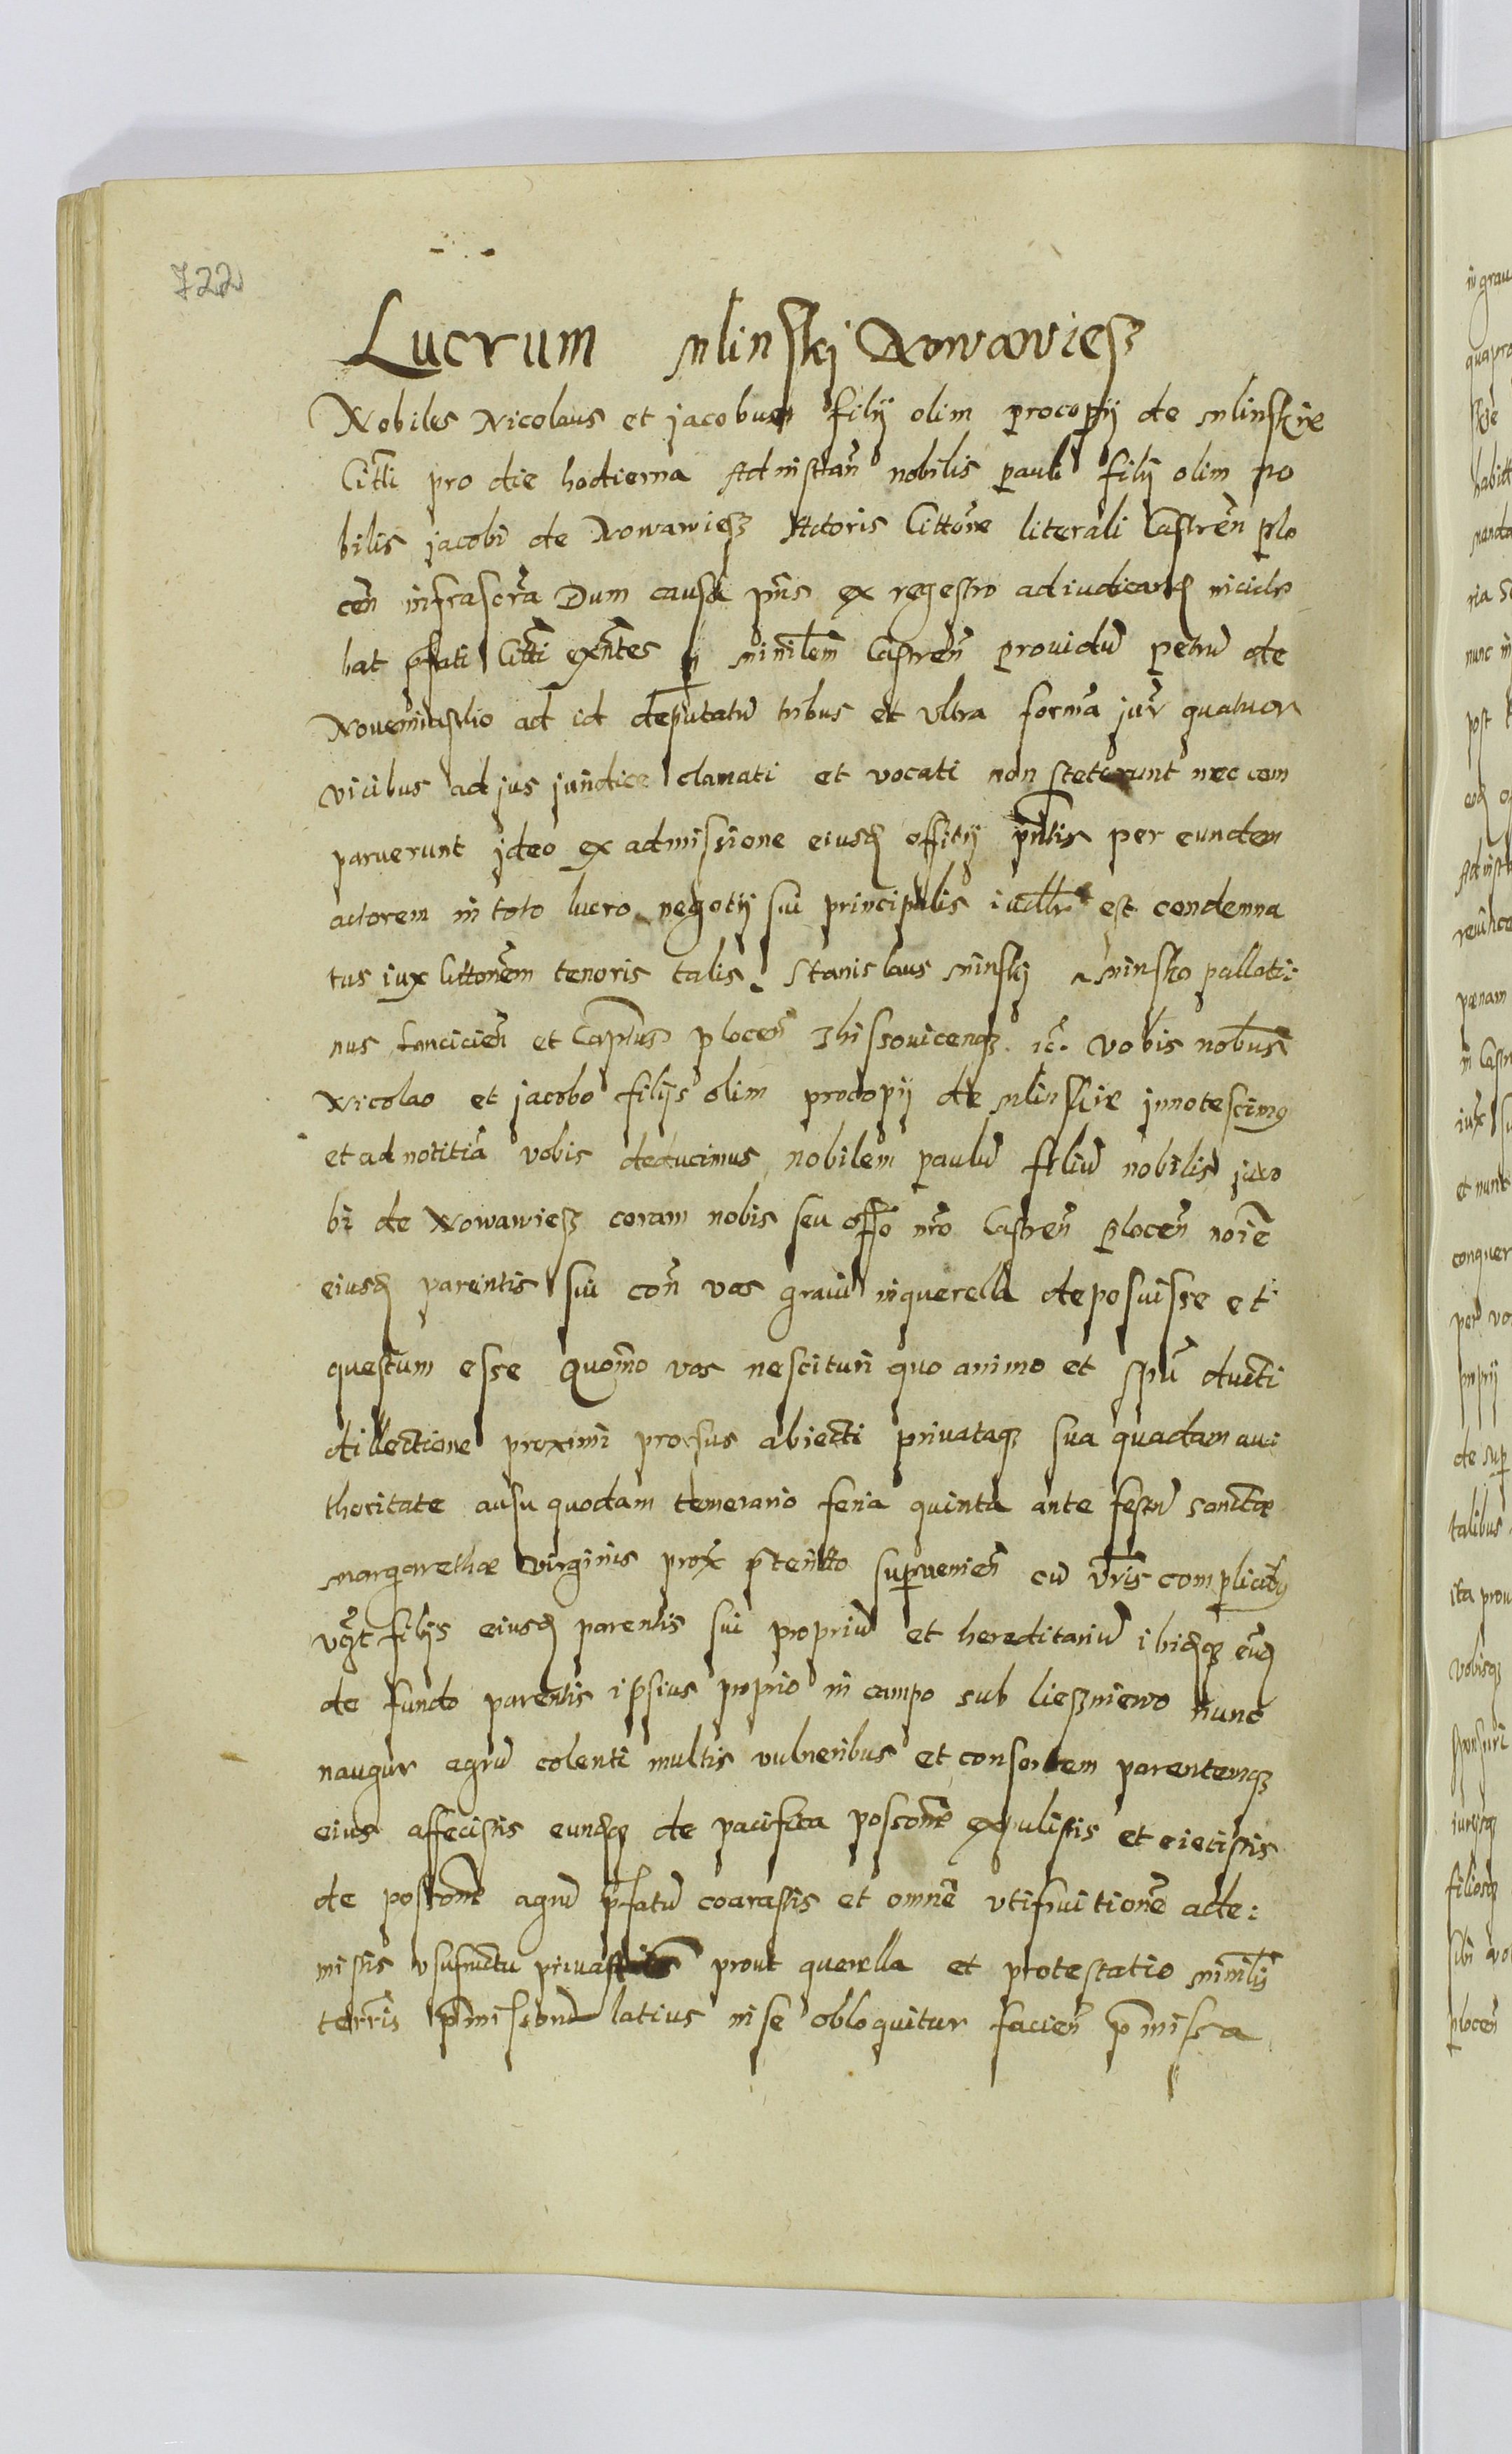 722
Lucrum Mlinskj Nowawiesz
Nobiles Nicolaus et jacobus filij olim procopij de Mlinskie
Citti pro die hodierna Ad instan nobilis pauli filij olim no
bilis jacobi de Nowawiesz Actoris Cittone literali Castren plo
cen infrascra Dum causa pns ex regestro ad iudicand incide
bat pfati Citti exntes p minilem Castren prouidu petru de
Nouemiastho ad id deputatu tribus et vltra forma jur quatuor
vicibus ad jus juridice clamati et vocati non steterunt nec com
paruerunt jdeo ex admissione eiusd offitij pntis per eundem
actorem in toto lucro negotij sui principalis est condemna
tus iux Cittonem tenoris talis Stanislaus Minskj a Minsko pallati:
nus Lancicien et Capneus plocen vobis nobus
Nicolao et jacobo filijs olim procopij de Mlinskie jnnotescimus
et ad notitia vobis deducimus nobilem paulu filiu nobilis jaco
bi de Nowawiesz coram nobis seu offo nro Castren plocen noie
eiusd parentis sui con vos graui in querella deposuisse et
questum esse Quomo vos nescituri quo animo et spu ducti
dillectione proximi prorsus abiecti priuataq sua quadam auc
thoritate ausu quodam temerario feria quinta ante festu sanctae
Margarethae virginis prox ptento superuenien cu vris complicibus
filijs eiusd parentis sui propriu et hereditariu ibidq eud
de fundo parentis ipsius proprio in campo sub lieszniewo nunc
agru colenti multis vulneribus et consortem parentemq
eius affecistis eundq de pacifica possone expulistis et eiecistis
de possone agru pfatu coarastis et omne vtifruitione ade:
mistis vsufructu priuastis prout querella et protestatio minilj
terris pmissoru latius in se obloquitur facien pmissa